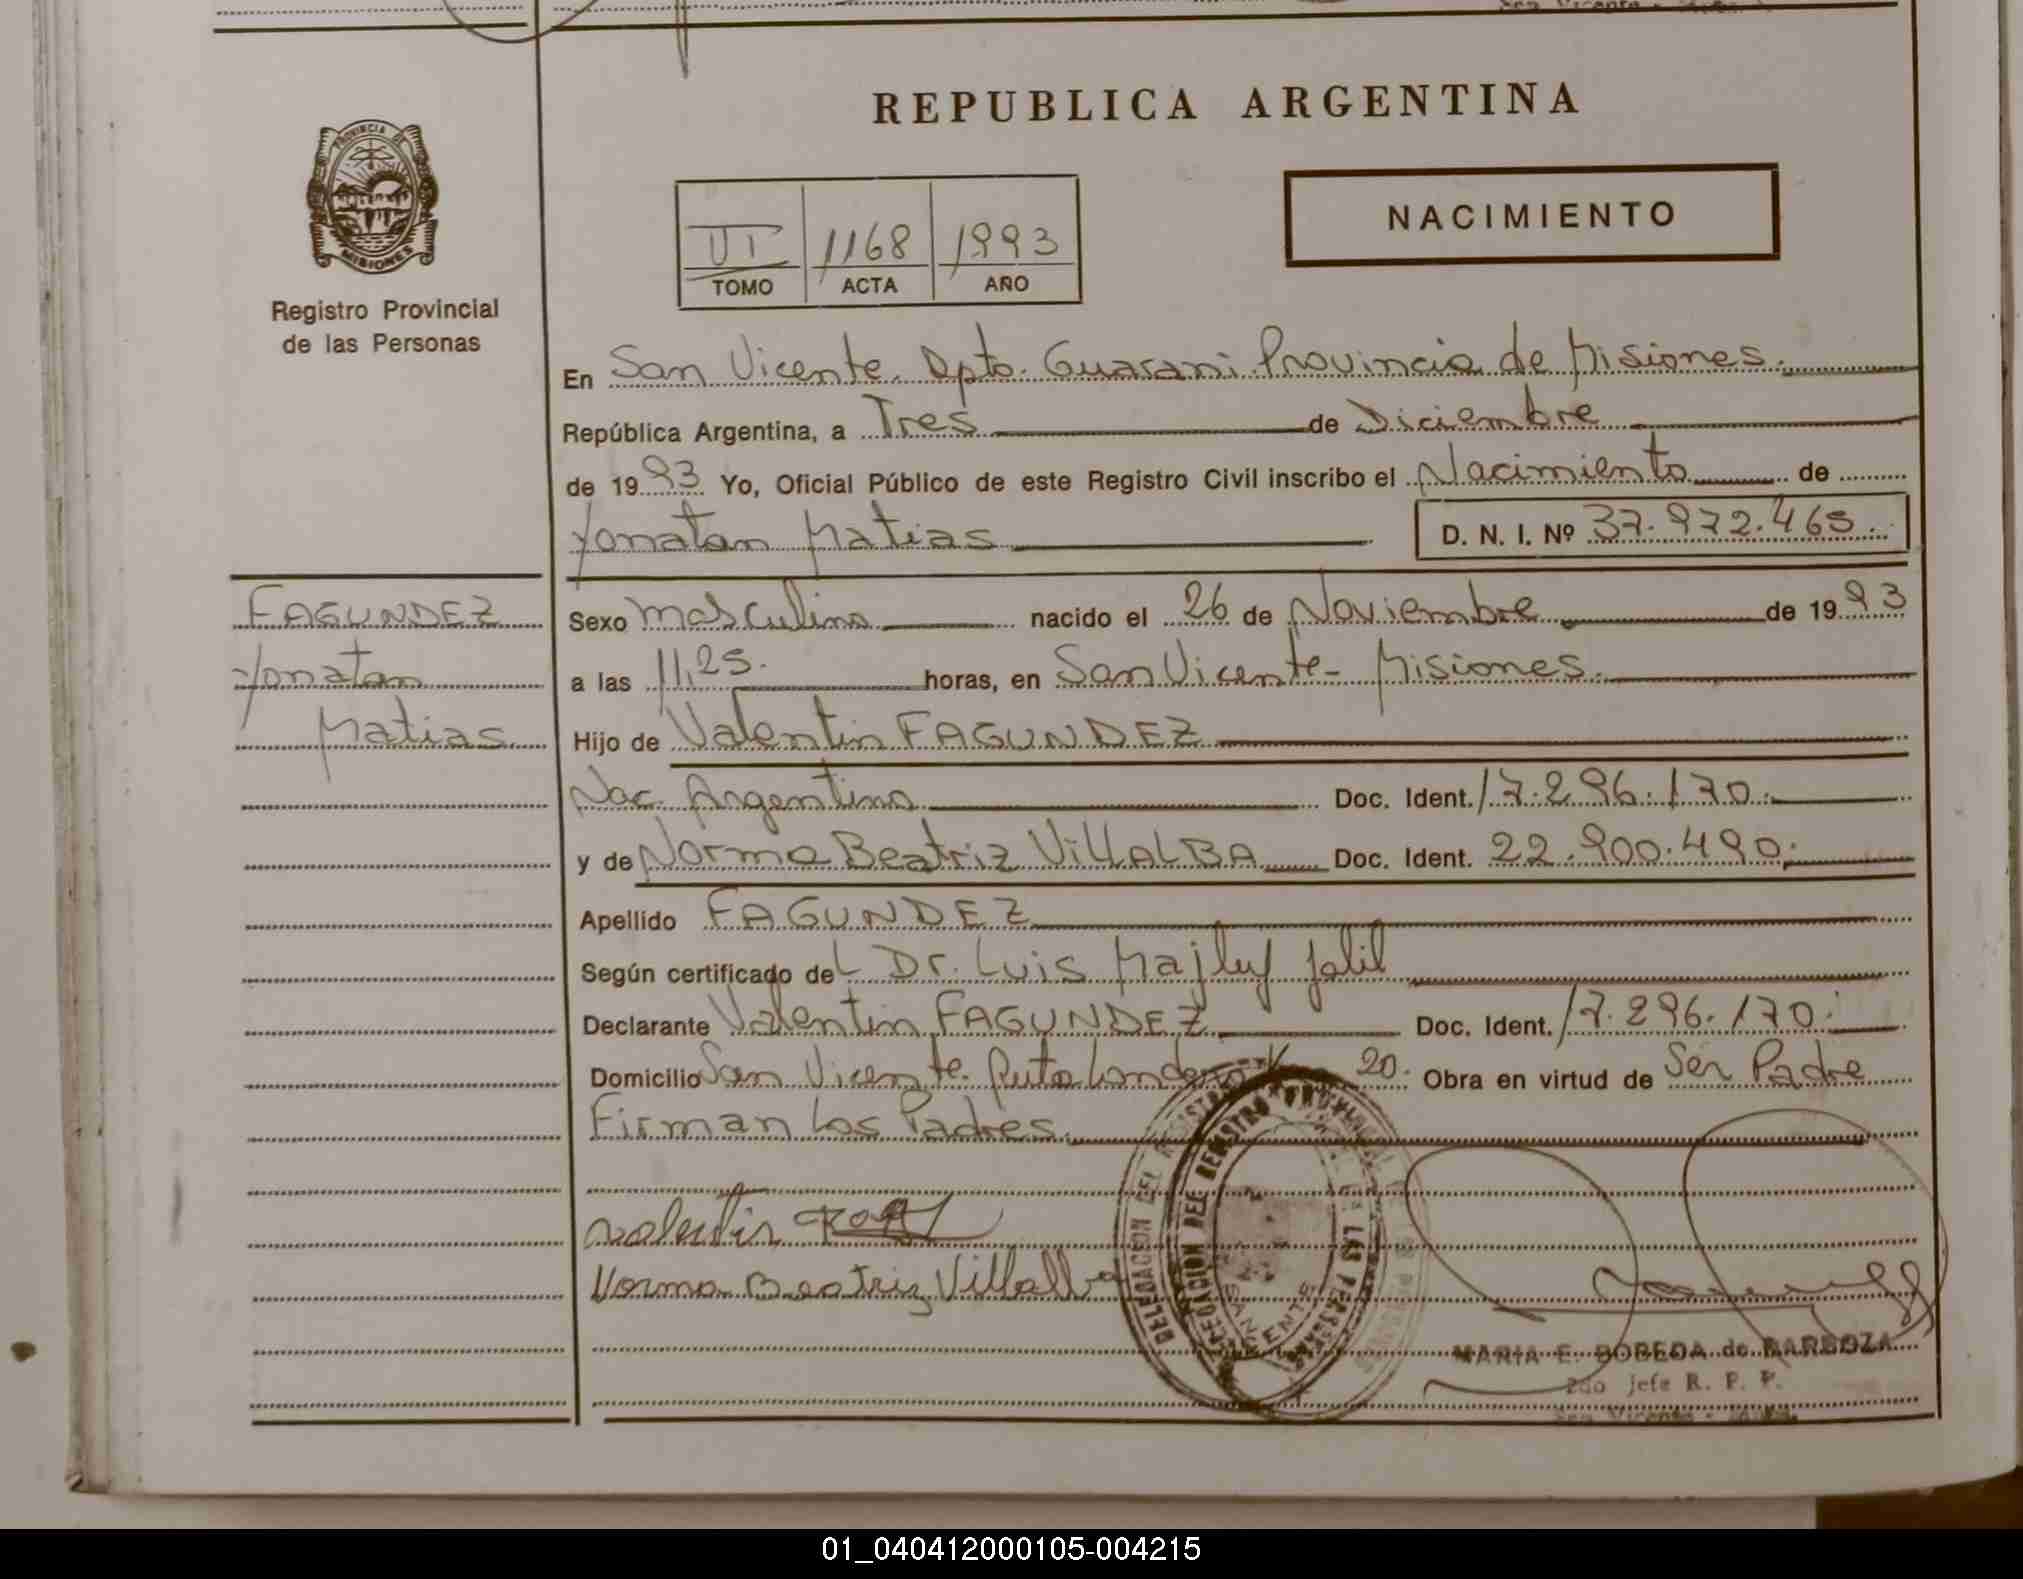 REPUBLICA ARGENTINA
PROVINCIA DE MISIONES
Registro Provincial
de las Personas
NACIMIENTO
VI 1168 1993
TOMO ACTA AÑO
En San Vicente. Dpto. Guarani. Provincia de Misiones.
República Argentina, a Tres de Diciembre
de 1993 Yo, Oficial Público de este Registro Civil inscribo el Nacimiento de
Yonatan Matias D. N. I. Nº 37.972.465.
FAGUNDEZ
Yonatan
Matias
Sexo Masculino nacido el 26 de Noviembre de 1993
a las 11,25. horas, en San Vicente- Misiones.
Hijo de Valentin FAGUNDEZ
Nac. Argentina Doc. Ident. 17.296.170.
y de Norma Beatriz VILLALBA Doc. Ident. 22.900.490.
Apellido FAGUNDEZ
Según certificado del Dr. Luis Majluf Jalil
Declarante Valentin FAGUNDEZ Doc. Ident. 17.296.170.
Domicilio San Vicente. Ruta 20. Obra en virtud de Ser Padre
Firman los Padres
Valentin
Norma Beatriz Villalba
DELEGACION DEL REGISTRO PROVINCIAL DE LAS PERSONAS
SAN VICENTE
MARIA E. BOBEDA de BARBOZA
2do Jefe R. P. P.
San Vicente - Mnes.
01_040412000105-004215